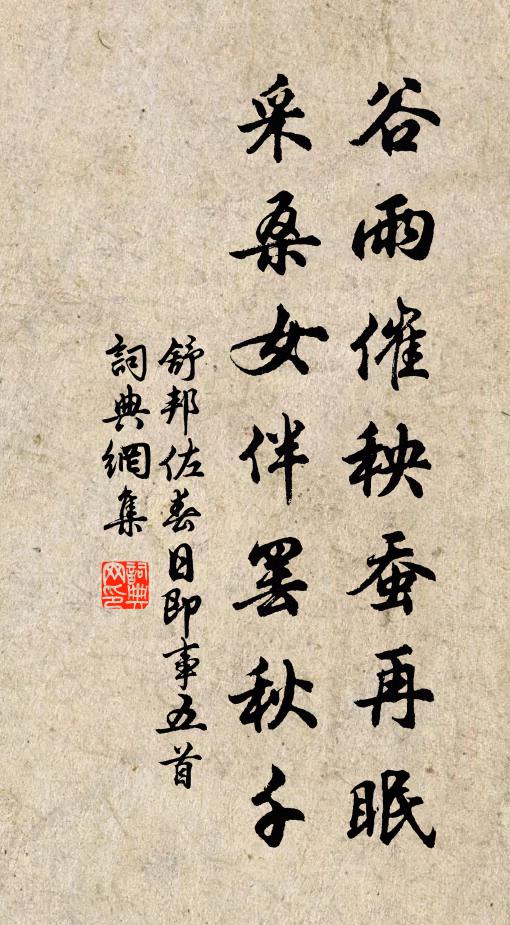 谷雨催秧蚕再眠
采桑女伴罢秋千
舒邦佐春日即事五首
詞典網集
詞典网印